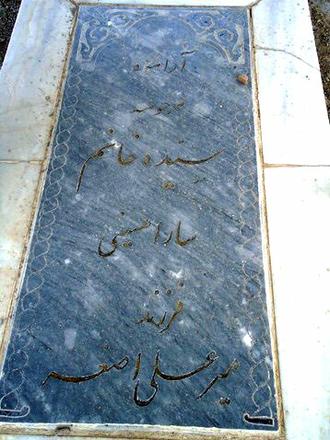 آرامگاه
سیده خانم
سارا حسینی
فرزند
میر علی اصغر